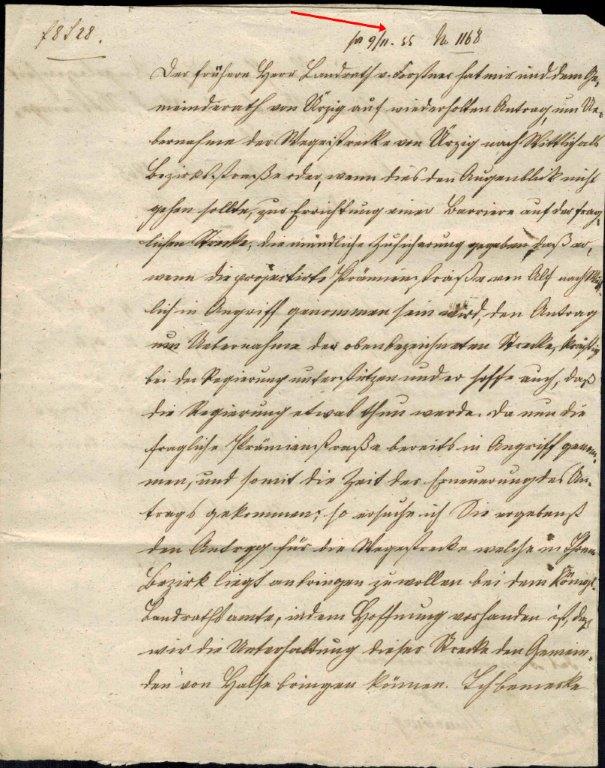 f 8 S 28.
pr 9/11. 55 No 1168
Der frühere Herr Landrath v. Forstner hat mir und dem Ge-
meinderath von Ürzig auf wiederholten Antrag, um Ue-
bernahme der Wegestrecke von Ürzig nach Wittlich als
Bezirksstraße oder, wenn dies den Augenblick nicht
gehen sollte, zur Errichtung einer Barriere auf der frag-
lichen Strecke, die mündliche Zusicherung gegeben, daß er,
wenn die projectirte Prämienstraße von Alf nach Witt-
lich in Angriff genommen sein wird, den Antrag
um Uebernahme der obenbezeichneten Strecke, kräftig
bei der Regierung unterstützen und er hoffe auch, daß
die Regierung etwas thun werde. Da nun die
fragliche Prämienstraße bereits in Angriff genom-
men, und somit die Zeit der Erneuerung des An-
trags gekommen; so ersuche ich Sie ergebenst
den Antrag für die Wegestrecke welche in Ihrem
Bezirk liegt anbringen zu wollen bei dem Königl.
Landrathsamte, indem Hoffnung vorhanden ist, daß
wir die Unterhaltung dieser Strecke den Gemein-
den vom Halse bringen können. Ich bemerke